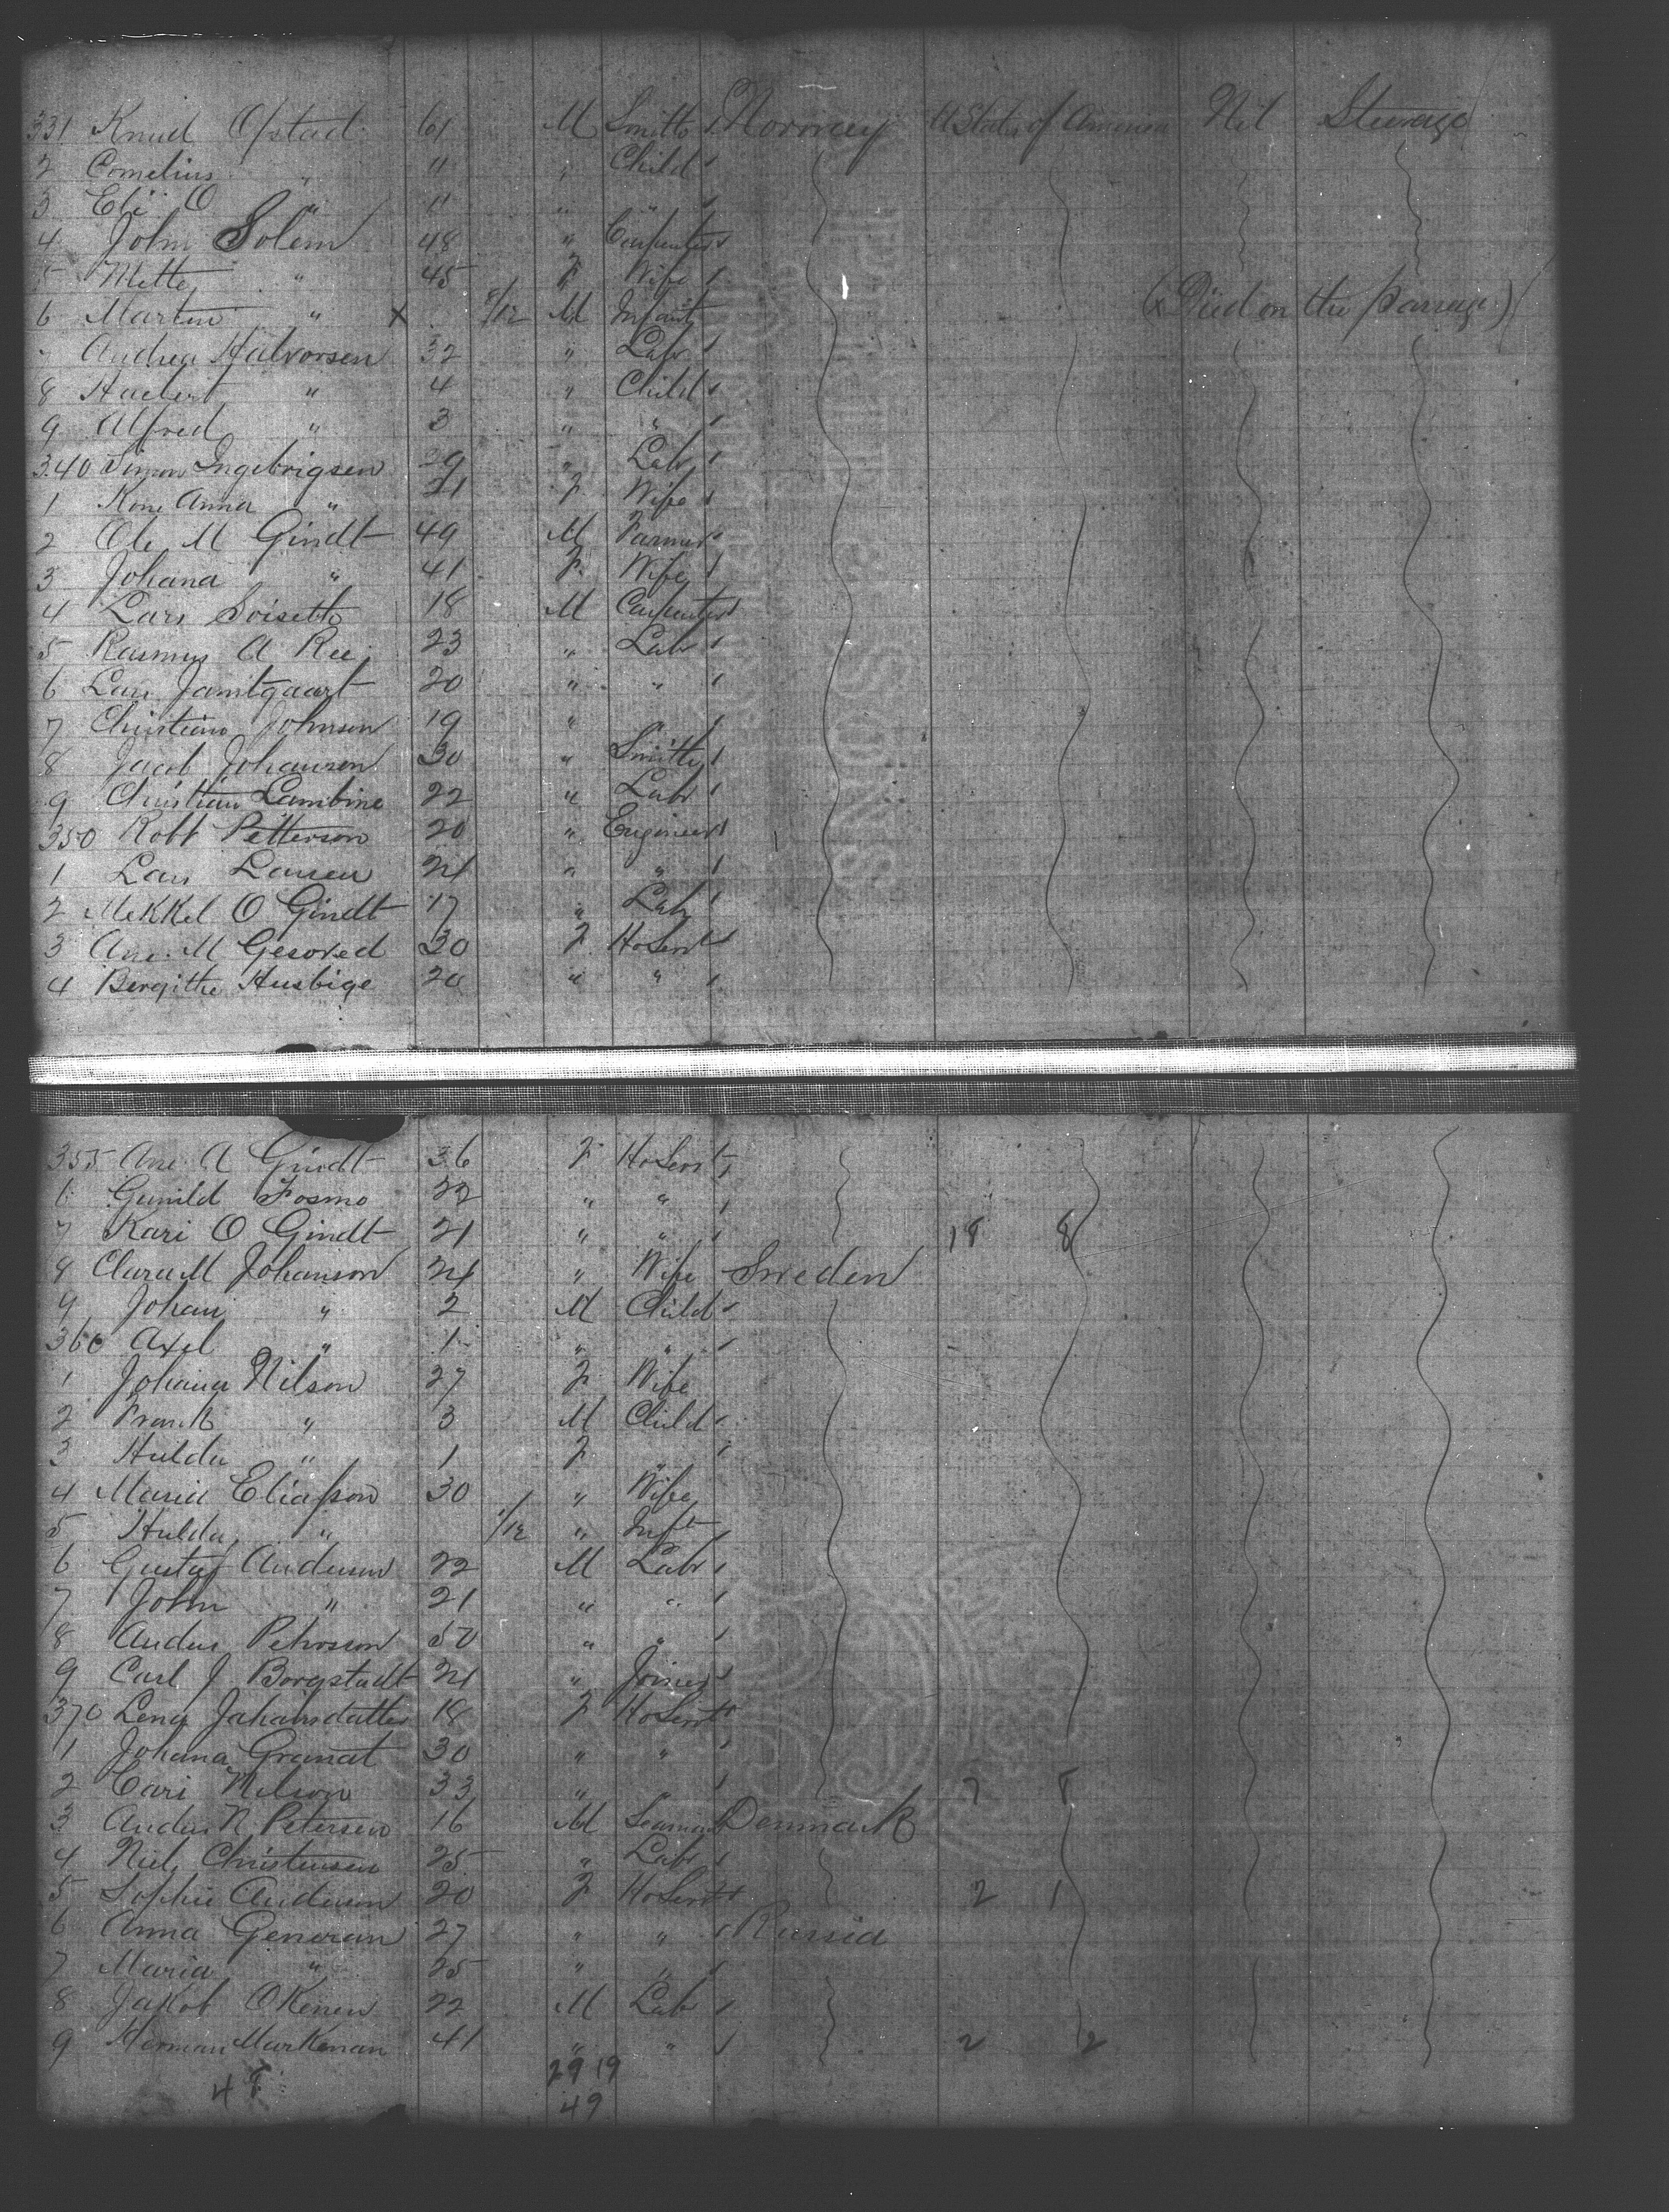 331 Knud Opstad 61 M Smith Norway U States of America Nil Steerage
2 Cornelius " 11 " Child
3 Eli O " 11 " "
4 John Solem 48 " Carpenter
5 Mette " 45 F Wife
6 Martin " X 8/12 M Infant (x Died on the passage)
7 Andrea Halvorsen 32 " Labr
8 " 4 " Child
9 Alfred " 3 " "
340 Simon Ingebrigsen 29 " Labr
1 Anna " 21 F Wife
2 Ole M Gindt 49 M Farmer
3 Johana " 41 F Wife
4 Lars Soisetto 18 M Carpenter
5 Rasmus A 23 " Labr
6 Lars Jamtgaart 20 " "
7 Christian Johnson 19 "
8 Jacob Johansen 30 " Smith
9 Christian Lambine 22 " Labr
350 Robt Petterson 20 " Engineer
1 Lars Larsen 24 " "
2 Mekkel O Gindt 17 " Labr
3 Ane M Gesoved 30 F HoServt
4 Bergithe Husbige 20 " "
355 Ane A Gindt 36 F HoServt
6 Gunild Fosmo 22 " "
7 Kari O Gindt 21 " " 18 8
8 Clara M Johanson 24 " Wife Sweden
9 Johan " 2 M Child
360 Axel " 1 " "
1 Johana Nilson 27 F Wife
2 Frank " 3 M Child
3 Hulda " 1 F "
4 Maria Eliasson 30 " Wife
5 Hulda " 1/12 " Inft
6 Gustaf Anderson 22 M Labr
7 John " 21 " "
8 Anders Petrosson 50 " "
9 Carl J Borgstadt 24 " Joiner
370 Lena Jahansdatter 18 F HoServt
1 Johana Granat 30 " "
2 Cari Nelson 33 " " 7 8
3 Anders N Petersen 16 M Seaman Denmark
4 Niels Christensen 25 " Labr
5 Sophie Anderson 20 F HoServt 2 1
6 Anna Generian 27 " " Russia
7 Maria " 25 " "
8 Jakob OKenen 22 M Labr
9 Herman Markenan 41 " " 2 2
48 29 19
49